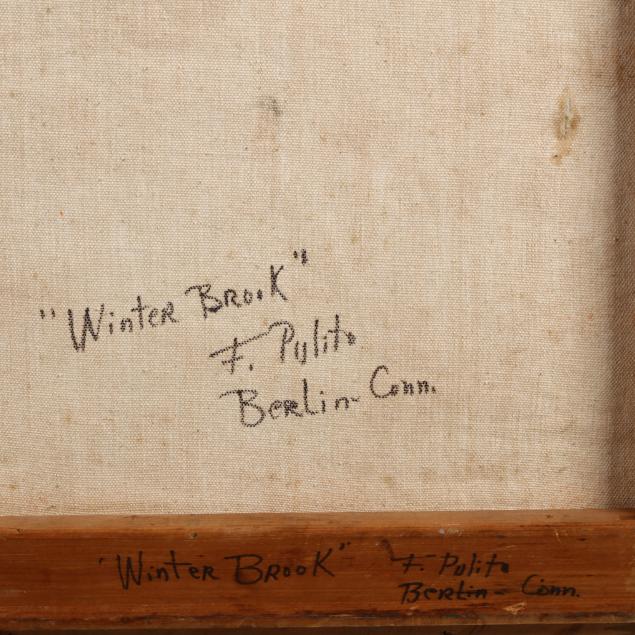 "Winter Brook"
F. Pulito
Berlin - Conn.
"Winter Brook" F. Pulito
Berlin - Conn.